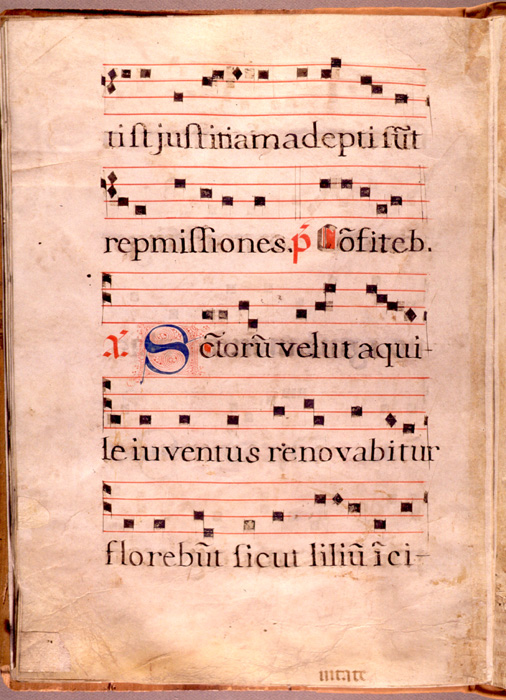 ti ſt juſtitiam adepti ſūt
repmiſſiones. p̄ Cōfiteb.
Sc̄torū velut aqui-
le iuventus renovabitur
florebūt ſicut liliū ī ci-
uitate